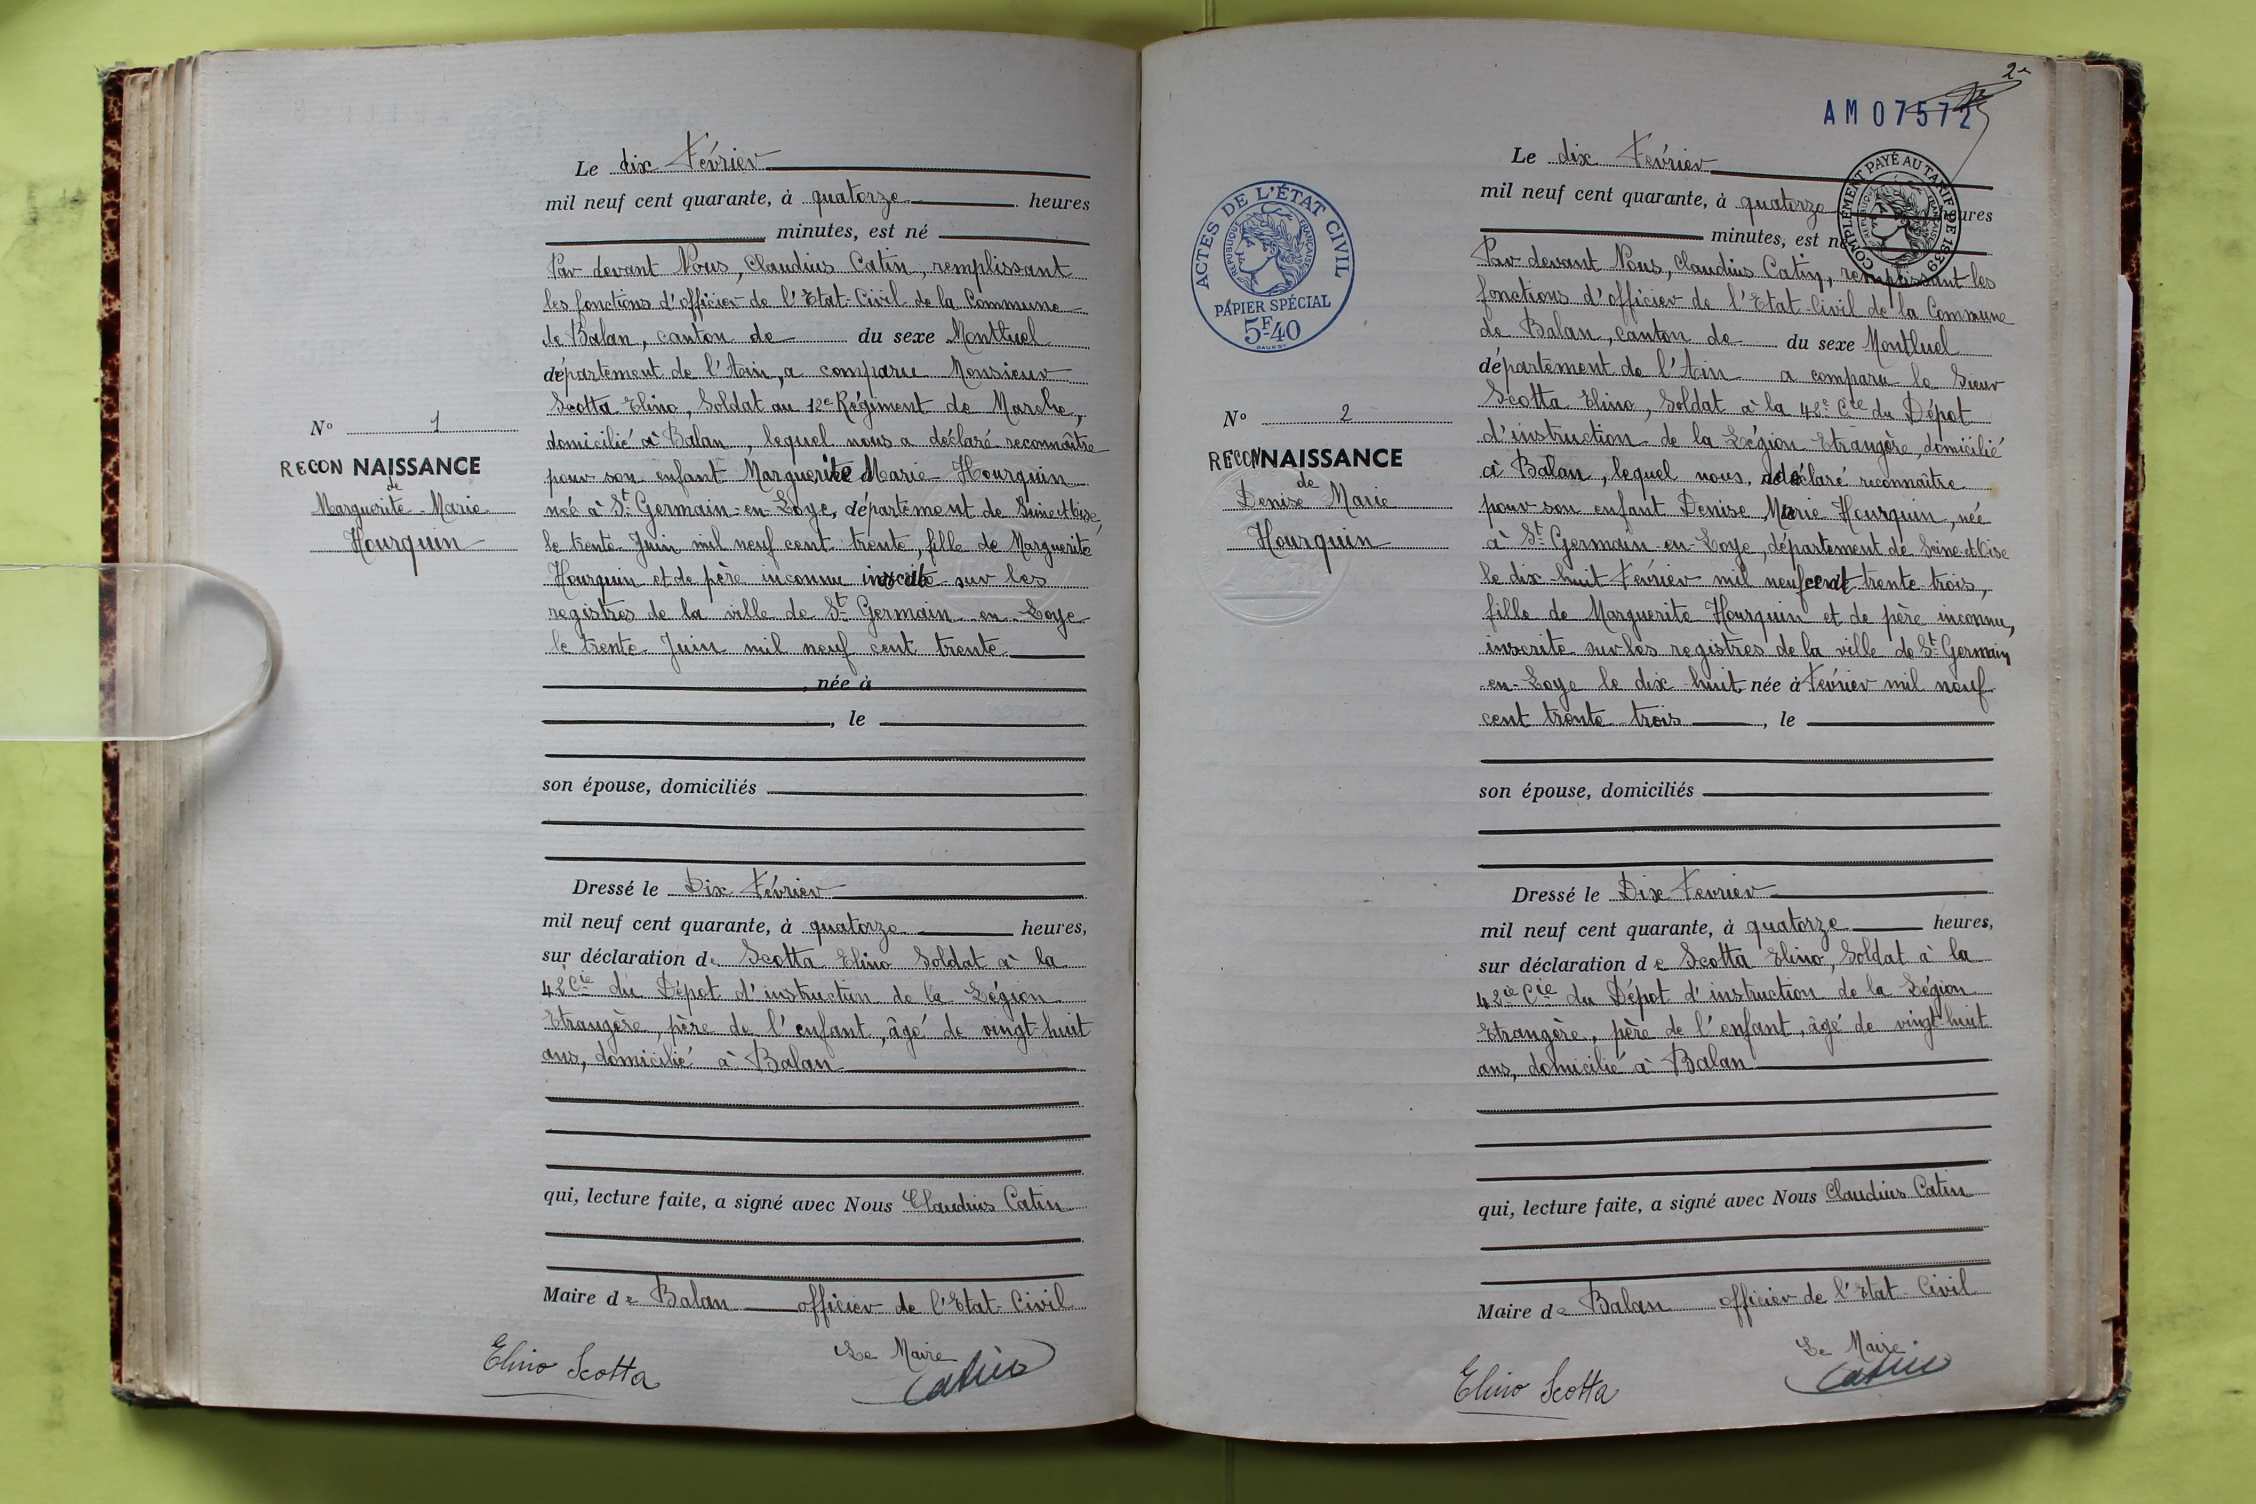 Le dix Février
mil neuf cent quarante, à quatorze heures
minutes, est né
Par devant Nous, Claudius Catin, remplissant
les fonctions d'officier de l'Etat-Civil de la Commune
de Balan, canton de du sexe Montluel
département de l'Ain, a comparu Monsieur
Scotta Elino, Soldat au 12e Régiment de Marche,
domicilié à Balan, lequel nous a déclaré reconnaître
pour son enfant Marguerite Marie Hourquin
née à St Germain-en-Loye, département de Seine-et-Oise,
le trente Juin mil neuf cent trente, fille de Marguerite
Hourquin et de père inconnu inscrite sur les
registres de la ville de St Germain-en-Loye
le trente Juin mil neuf cent trente
, née à
, le
son épouse, domiciliés
Dressé le Dix Février
mil neuf cent quarante, à quatorze heures,
sur déclaration de Scotta Elino Soldat à la
42 Cie du Dépot d'instruction de la Légion
Etrangère, père de l'enfant, âgé de vingt-huit
ans, domicilié à Balan
qui, lecture faite, a signé avec Nous Claudius Catin
Maire de Balan officier de l'Etat-Civil
Elino Scotta
Le Maire
Catin
N° 1
RECONNAISSANCE
de
Marguerite-Marie
Hourquin
AM 07572
COMPLÉMENT PAYÉ AU TARIF DE 1939
RÉPUBLIQUE FRANÇAISE
Le dix Février
mil neuf cent quarante, à quatorze heures
minutes, est né
Par devant Nous, Claudius Catin, remplissant les
fonctions d'officier de l'Etat-Civil de la Commune
de Balan, canton de du sexe Montluel
département de l'Ain a comparu le Sieur
Scotta Elino, Soldat à la 42e Cie du Dépot
d'instruction de la Légion Etrangère, domicilié
à Balan, lequel nous a déclaré reconnaître
pour son enfant Denise Marie Hourquin, née
à St Germain-en-Loye, département de Seine-et-Oise
le dix-huit Février mil neuf cent trente-trois,
fille de Marguerite Hourquin et de père inconnu,
inscrite sur les registres de la ville de St Germain
en-Loye le dix-huit née à Février mil neuf
cent trente trois , le
son épouse, domiciliés
Dressé le Dix Fevrier
mil neuf cent quarante, à quatorze heures,
sur déclaration de Scotta Elino, Soldat à la
42ie Cie du Dépot d'instruction de la Légion
Etrangère, père de l'enfant, âgé de vingt-huit
ans, domicilié à Balan
qui, lecture faite, a signé avec Nous Claudius Catin
Maire de Balan officier de l'Etat-Civil
Elino Scotta
Le Maire
Catin
ACTES DE L'ÉTAT CIVIL
RÉPUBLIQUE FRANÇAISE
PAPIER SPÉCIAL
5F40
N° 2
RECONNAISSANCE
de
Denise Marie
Hourquin